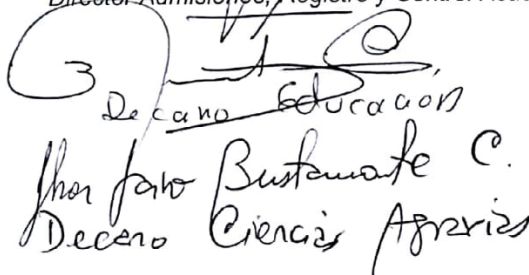 Director Admisiones, Registro y Control Acad
Decano Educación
Jhon Jairo Bustamante C.
Decano Ciencias Agrarias